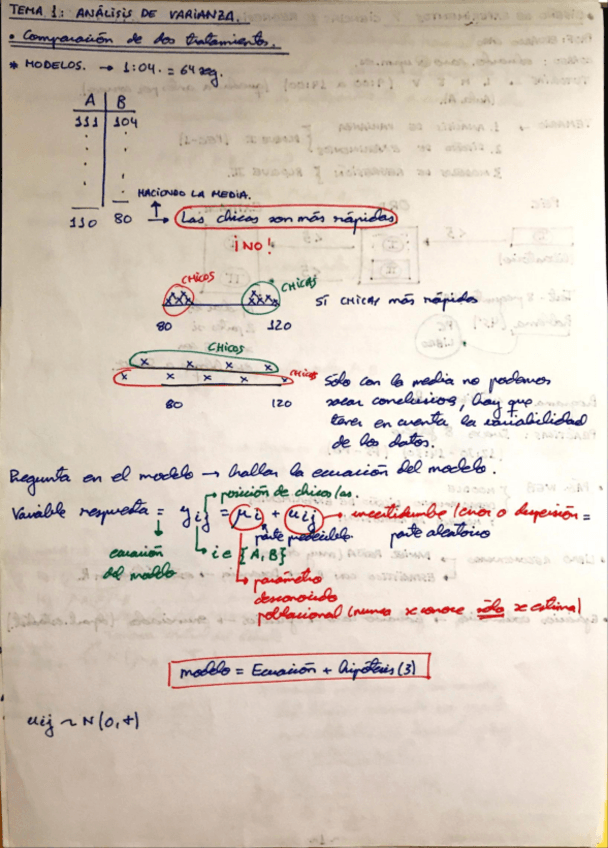 TEMA 1: ANÁLISIS DE VARIANZA.
• Comparación de dos tratamientos.
* MODELOS. → 1:04. = 64 seg.
A | B
111 | 104
110 80 → Las chicas son más rápidas
HACIENDO LA MEDIA.
¡NO!
CHICOS CHICAS
80 120
SI CHICAS más rápidas
CHICOS
CHICAS
80 120
Sólo con la media no podemos
sacar conclusiones, hay que
tener en cuenta la variabilidad
de los datos.
Pregunta en el modelo → hallar la ecuación del modelo.
posición de chicos/as.
Variable respuesta = yij = μi + uij → incertidumbe / error o dispersión =
parte predecible parte aleatoria
ecuación
del modelo
i ∈ {A, B}
parámetro
desconocido
poblacional (nunca se conoce sólo se estima)
modelo = Ecuación + hipótesis (3)
uij ~ N(0,